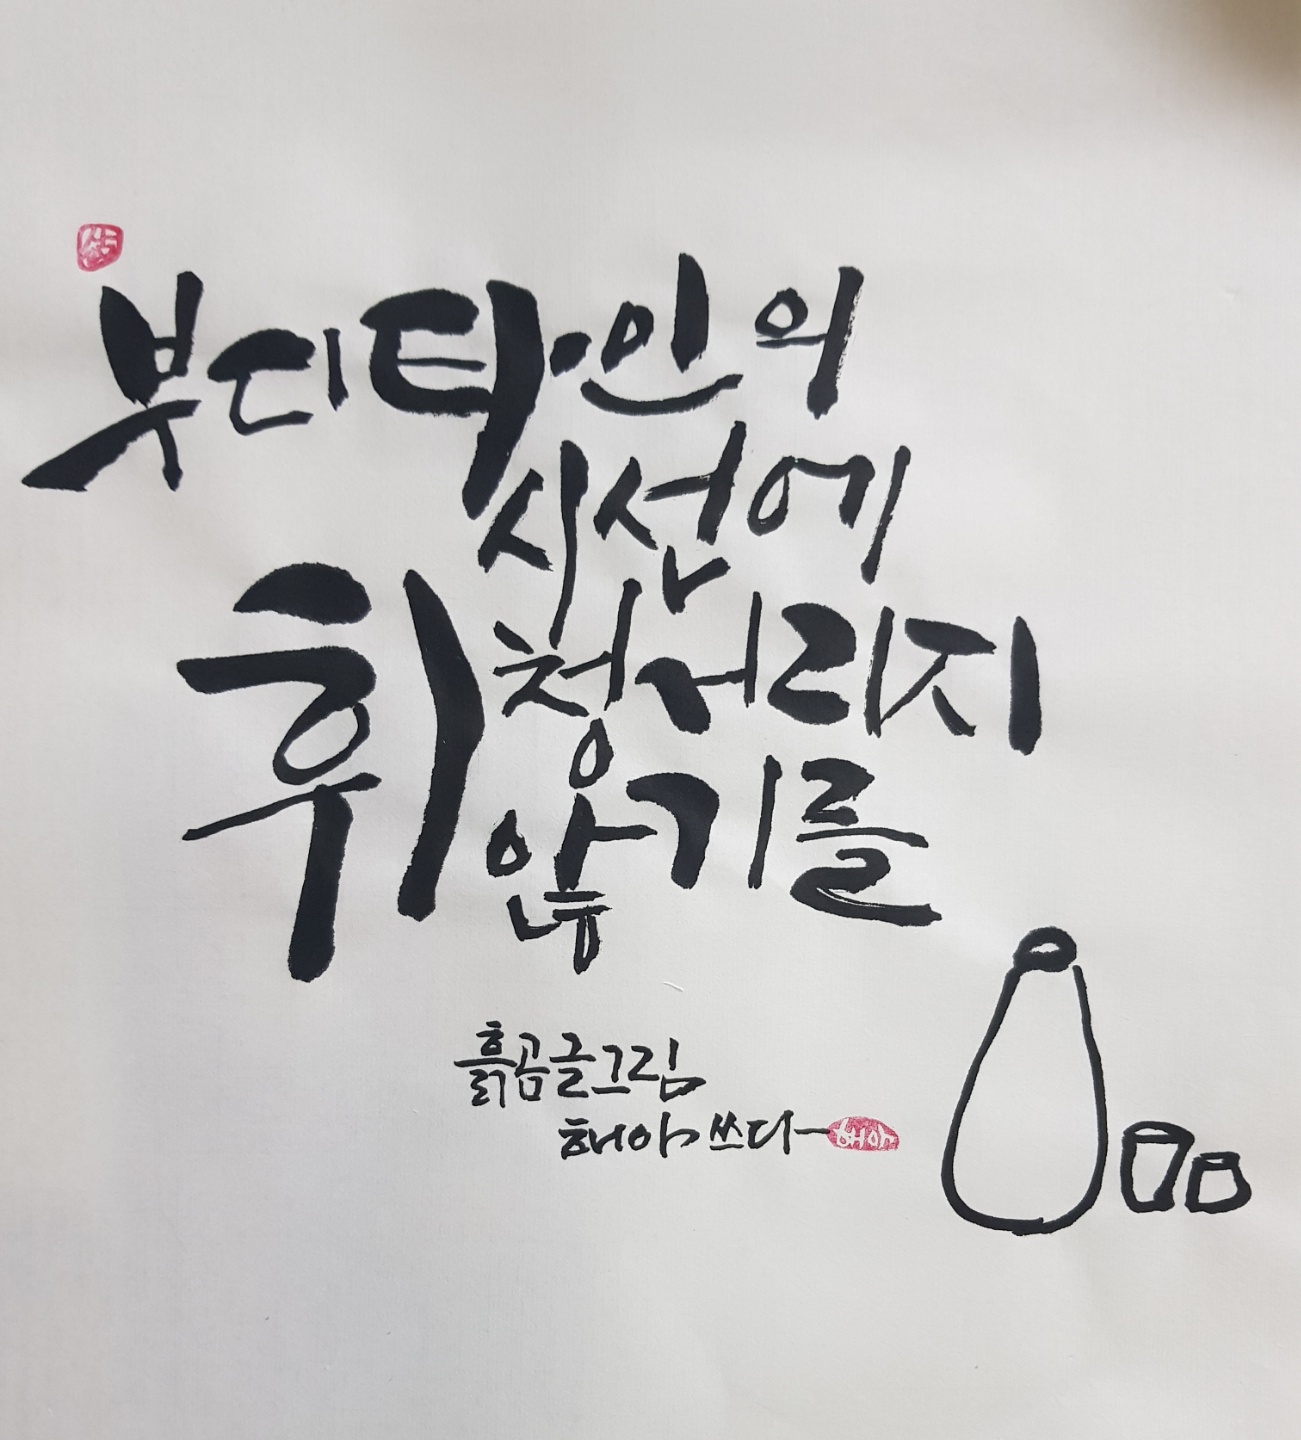 부디 타인의
시선에
휘청거리지
않기를
흙곰글그림
해아 쓰다
해아